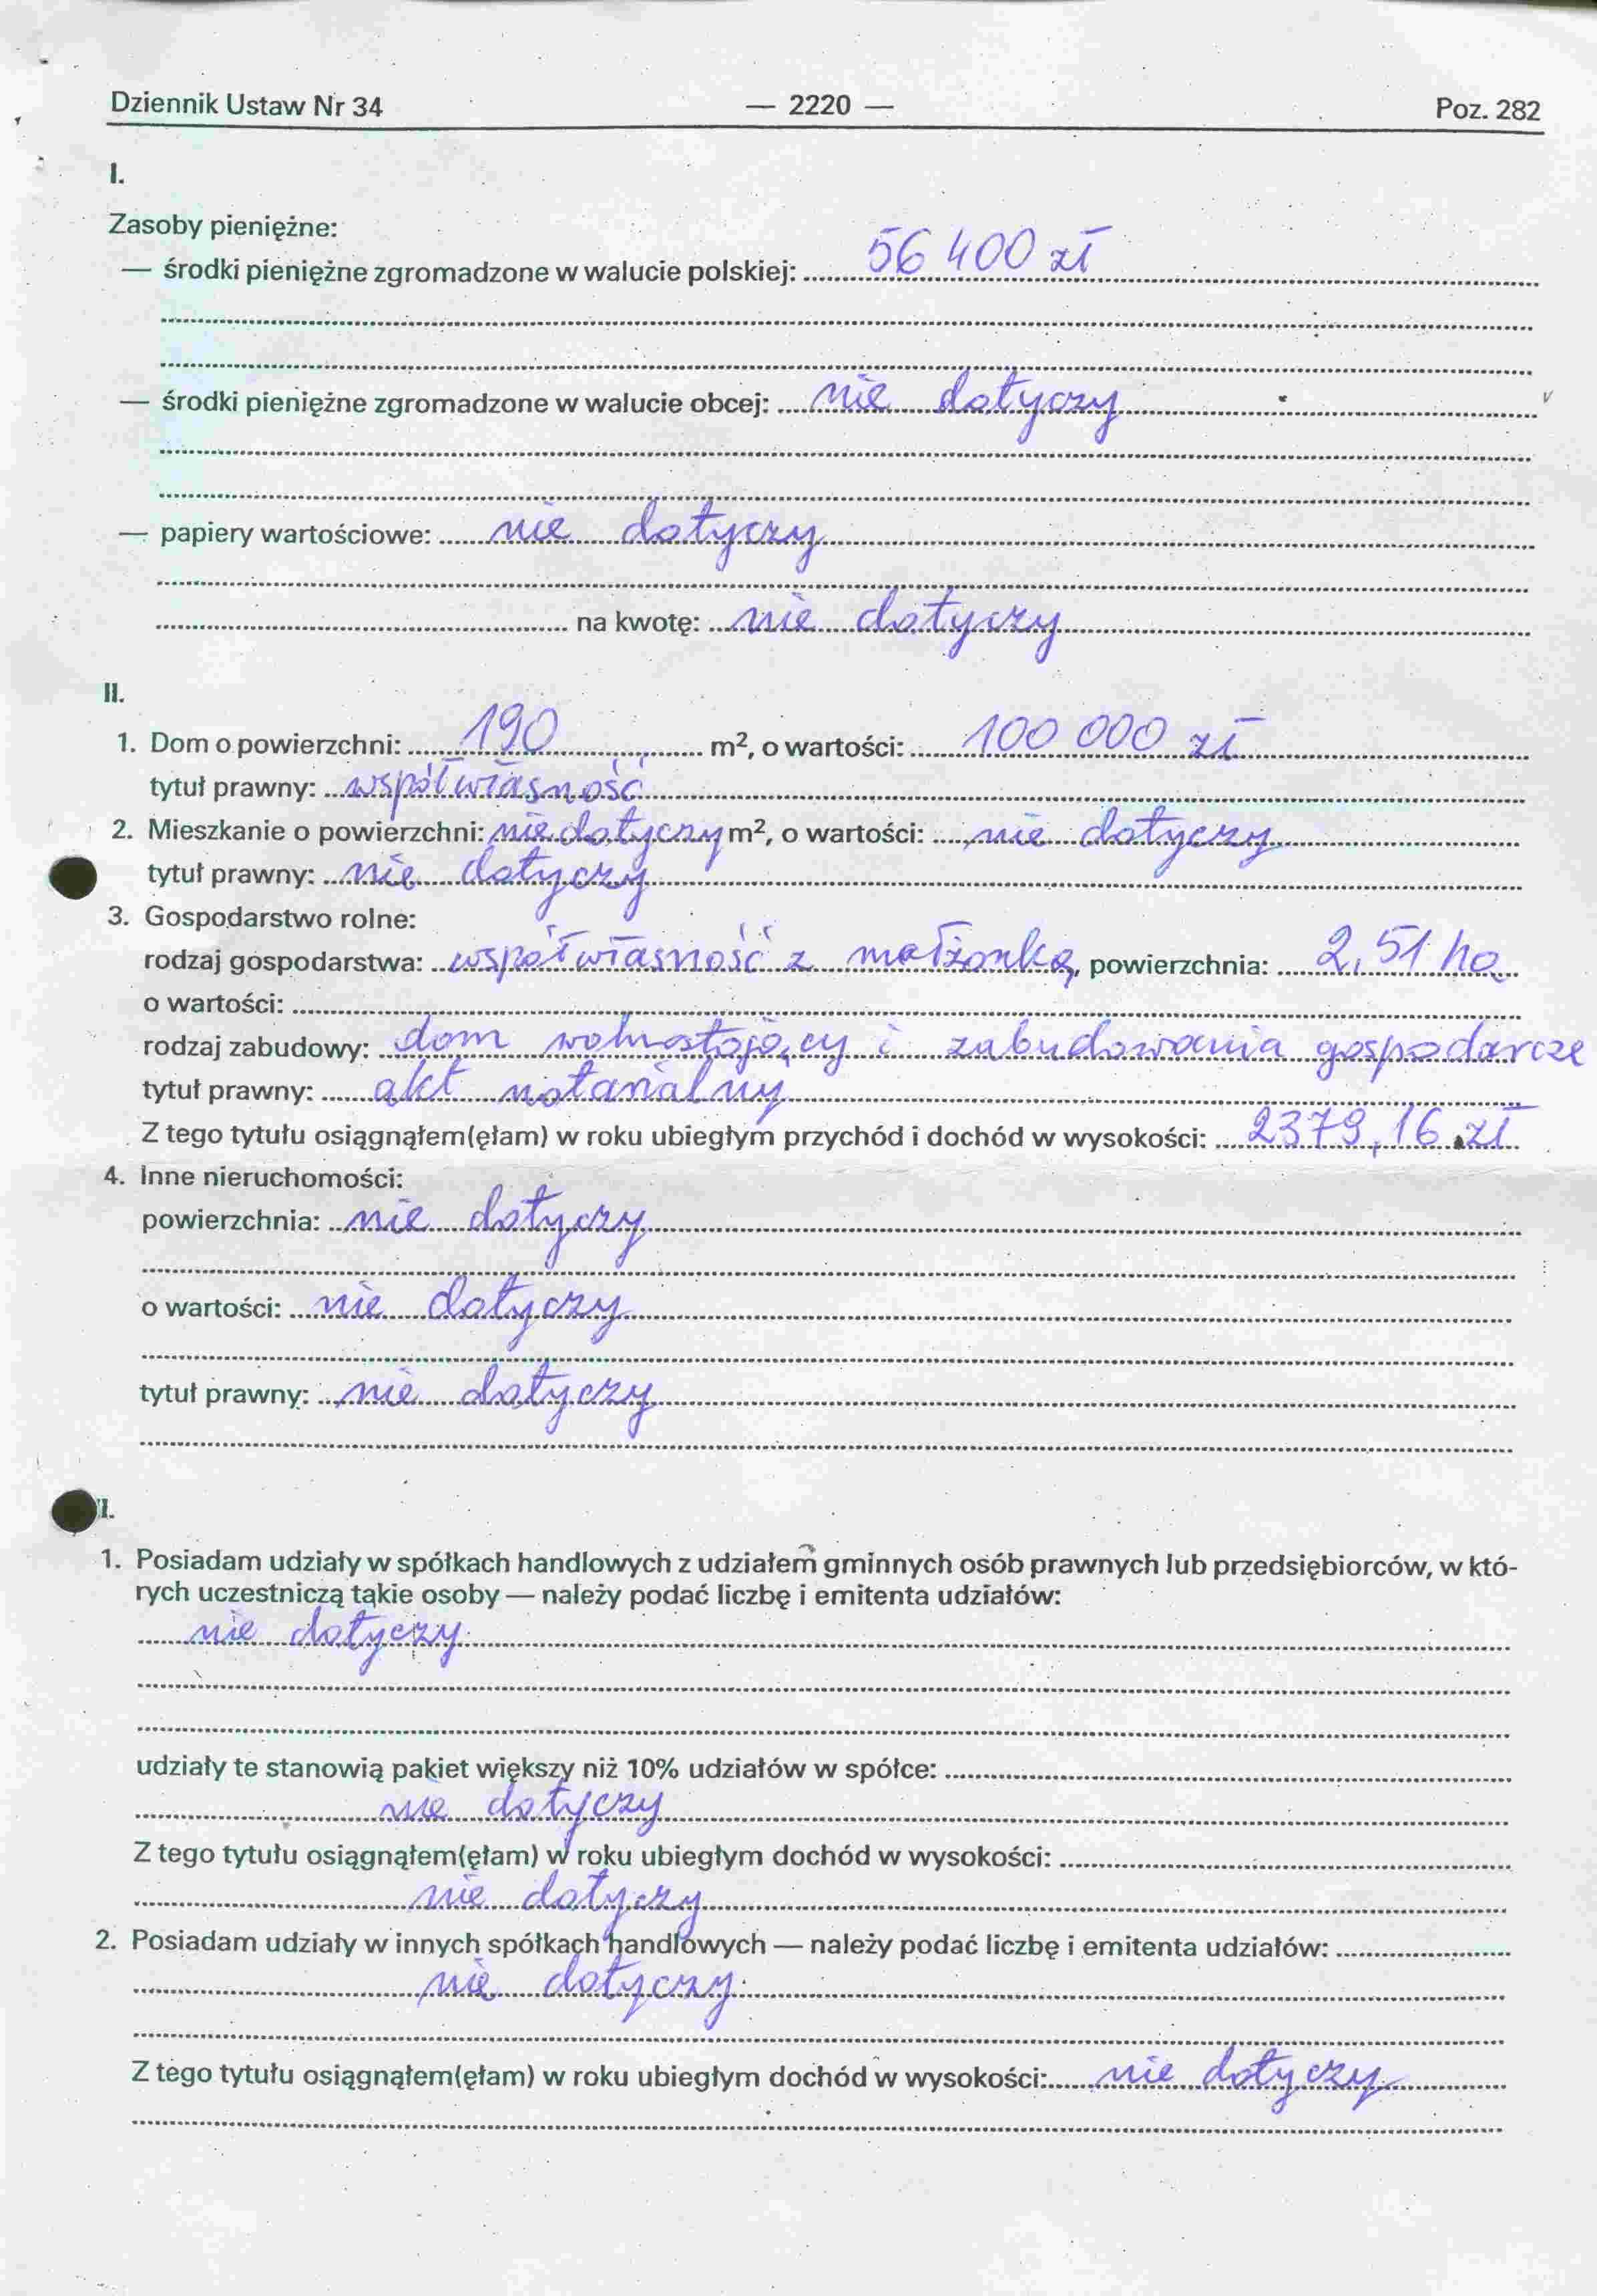 Dziennik Ustaw Nr 34 — 2220 — Poz. 282
I.
Zasoby pieniężne:
— środki pieniężne zgromadzone w walucie polskiej: 56 400 zł
— środki pieniężne zgromadzone w walucie obcej: nie dotyczy
— papiery wartościowe: nie dotyczy
na kwotę: nie dotyczy
II.
1. Dom o powierzchni: 190 m², o wartości: 100 000 zł
tytuł prawny: współwłasność
2. Mieszkanie o powierzchni: nie dotyczy m², o wartości: nie dotyczy
tytuł prawny: nie dotyczy
3. Gospodarstwo rolne:
rodzaj gospodarstwa: współwłasność z małżonką, powierzchnia: 2,51 ha
o wartości:
rodzaj zabudowy: dom wolnostojący i zabudowania gospodarcze
tytuł prawny: akt notarialny
Z tego tytułu osiągnąłem(ęłam) w roku ubiegłym przychód i dochód w wysokości: 2379,16 zł
4. Inne nieruchomości:
powierzchnia: nie dotyczy
o wartości: nie dotyczy
tytuł prawny: nie dotyczy
II.
1. Posiadam udziały w spółkach handlowych z udziałem gminnych osób prawnych lub przedsiębiorców, w któ-
rych uczestniczą takie osoby — należy podać liczbę i emitenta udziałów:
nie dotyczy
udziały te stanowią pakiet większy niż 10% udziałów w spółce:
nie dotyczy
Z tego tytułu osiągnąłem(ęłam) w roku ubiegłym dochód w wysokości:
nie dotyczy
2. Posiadam udziały w innych spółkach handlowych — należy podać liczbę i emitenta udziałów:
nie dotyczy
Z tego tytułu osiągnąłem(ęłam) w roku ubiegłym dochód w wysokości: nie dotyczy